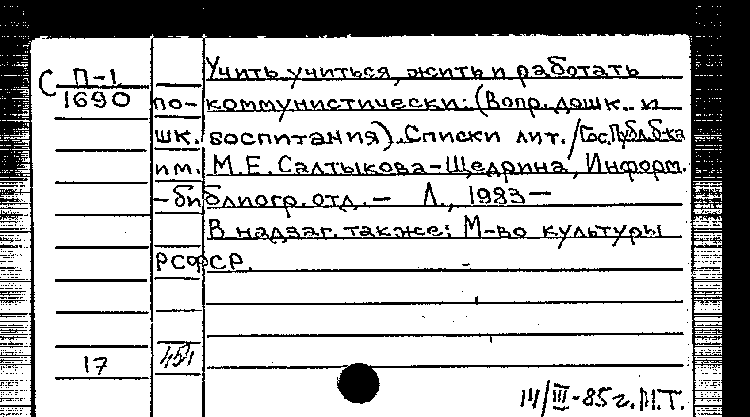 С П-1 Учить учиться, жить и работать
1690 по-коммунистически: (Вопр. дошк. и
шк. воспитания). Списки лит. / Гос. Публ. б-ка
им. М.Е. Салтыкова-Щедрина, Информ.
-библиогр. отд. — Л., 1983 —
В надзаг. также: М-во культуры
РСФСР.
17 451
14/III-85 г. М.Т.